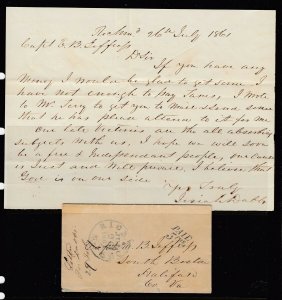 Richmd 26th July 1861
Capt E. B. Jeffress
Dr Sir
If you have any
Money I would be glad to get some I
have not enough to pay Taxes, I wrote
to Mr. Terry to get you to
that he has please attend to it for me
Our late victories are the all absorbing
subjects with us, I hope we will soon
be a free & Independent people, our cause
is Just and will prevail, I believe that
God is on our side
Yrs Truly
RIC
PAID
E. B. Jeffress
South Boston
Halifax
Co Va